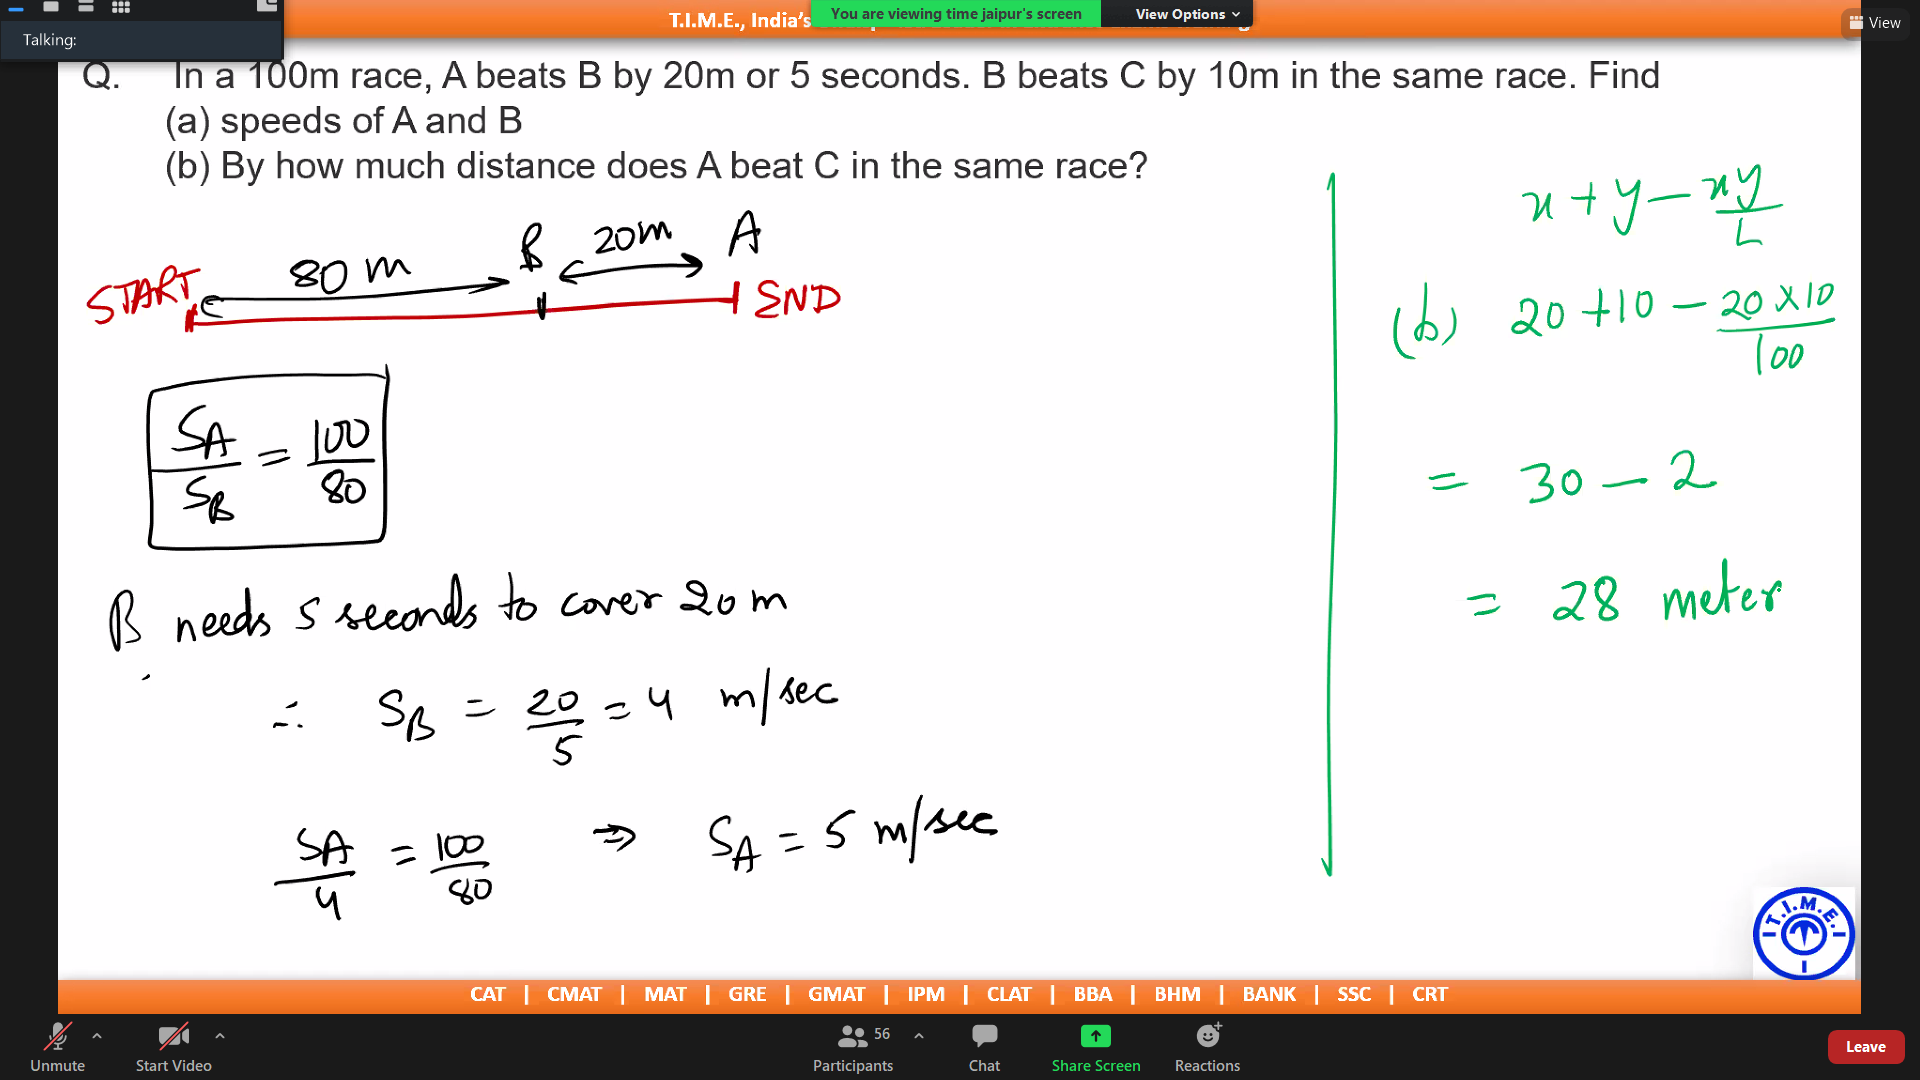 T.I.M.E., India's
You are viewing time jaipur's screen
View Options
View
Talking:
Q. In a 100m race, A beats B by 20m or 5 seconds. B beats C by 10m in the same race. Find
(a) speeds of A and B
(b) By how much distance does A beat C in the same race?
START 80 m B 20m A END
S_A / S_B = 100 / 80
B needs 5 seconds to cover 20 m
∴ S_B = 20/5 = 4 m/sec
S_A / 4 = 100 / 80 ⇒ S_A = 5 m/sec
x + y - xy/L
(b) 20 + 10 - 20 x 10 / 100
= 30 - 2
= 28 meter
T.I.M.E.
CAT | CMAT | MAT | GRE | GMAT | IPM | CLAT | BBA | BHM | BANK | SSC | CRT
Unmute
Start Video
56
Participants
Chat
Share Screen
Reactions
Leave